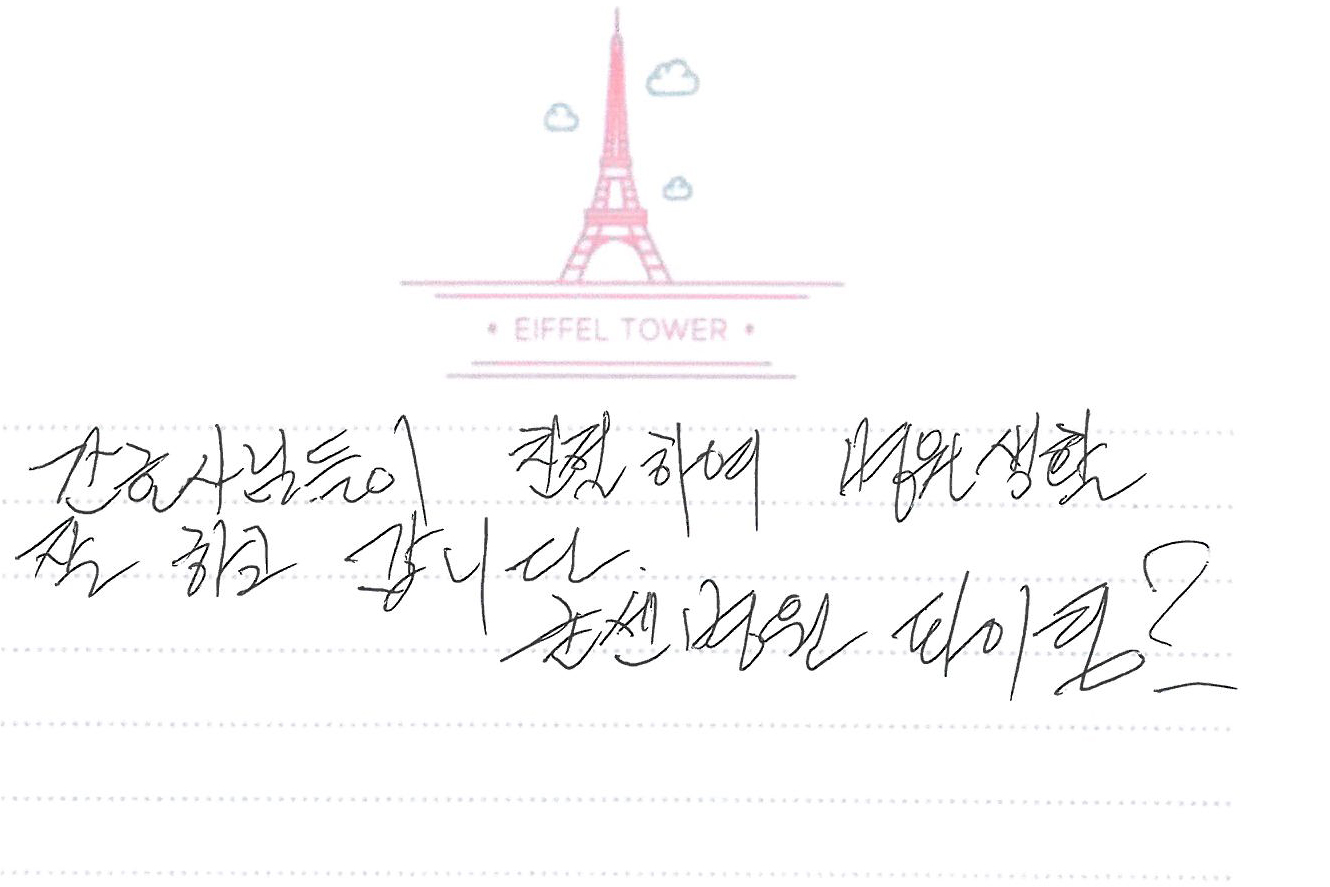 EIFFEL TOWER
간호사님들이 친절하여 병원생활
잘 하고 갑니다.
굳쎈병원 파이팅?